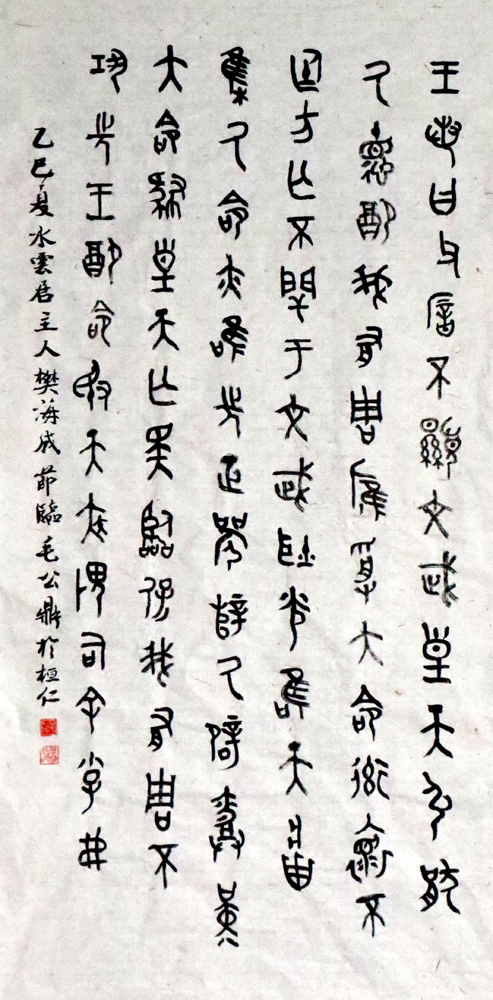 王若曰父厝不顯文武皇天弘猒
氒德配我有周雁受大命率褱不
廷方亡不閈于文武耿光唯天將
集氒命亦唯先正辥氒辟堇
大命肆皇天亡斁臨保我有周不
巩先王配命敃天疾畏司余小子弗
乙巳夏水雲居主人樊海成節臨毛公鼎於桓仁